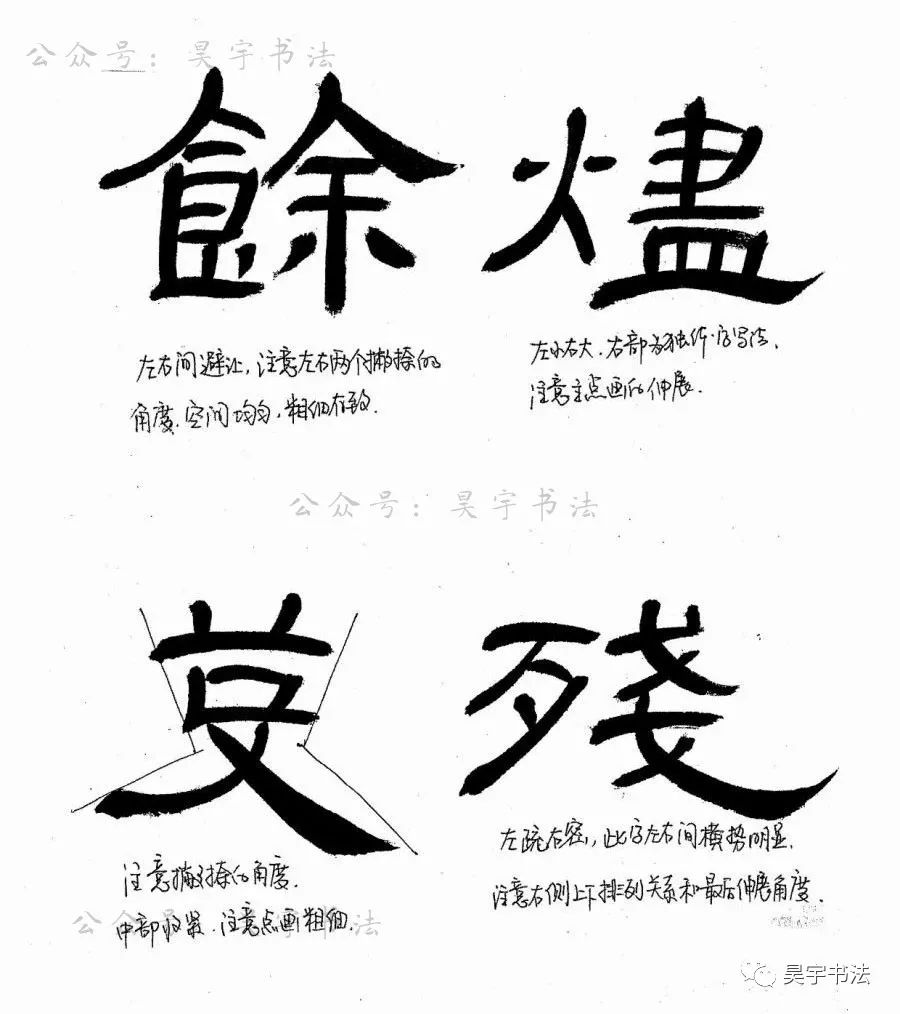 公众号：昊宇书法
餘 燼
左右间避让，注意左右两个撇捺的
角度.空间均匀，粗细有致.
左小右大.右部为独体字写法，
注意主点画的伸展.
公众号：昊宇书法
殘
注意撇捺的角度.
中部收紧.注意点画粗细.
左疏右密，此字左右间横势明显.
注意右侧上下排列关系和最后伸展角度.
公众号 书法
昊宇书法